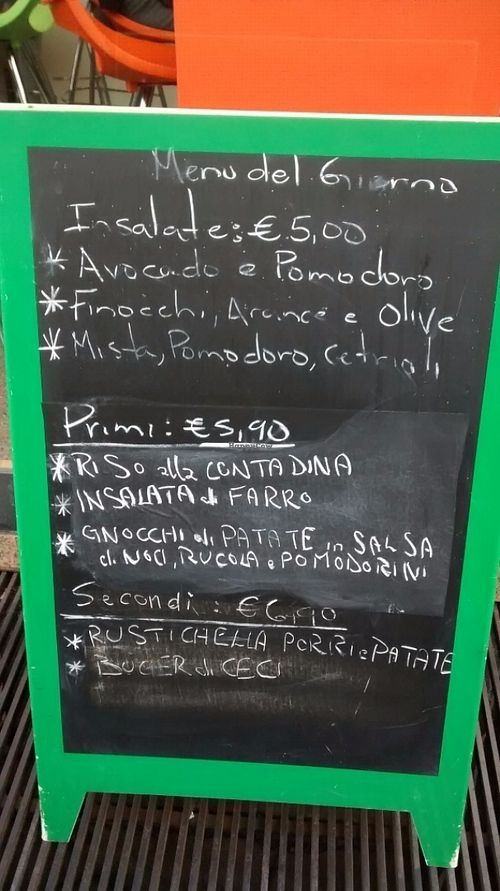 Menu del Giorno
Insalate: € 5,00
* Avocado e Pomodoro
* Finocchi, Arance e Olive
* Mista, Pomodoro, Cetrioli
Primi: € 5,90
* RISO alla CONTADINA
* INSALATA di FARRO
* GNOCCHI di PATATE in SALSA
di NOCI, RUCOLA e POMODORINI
Secondi: € 6,90
* RUSTICHELLA PORRI e PATATE
* BUGER di CECI